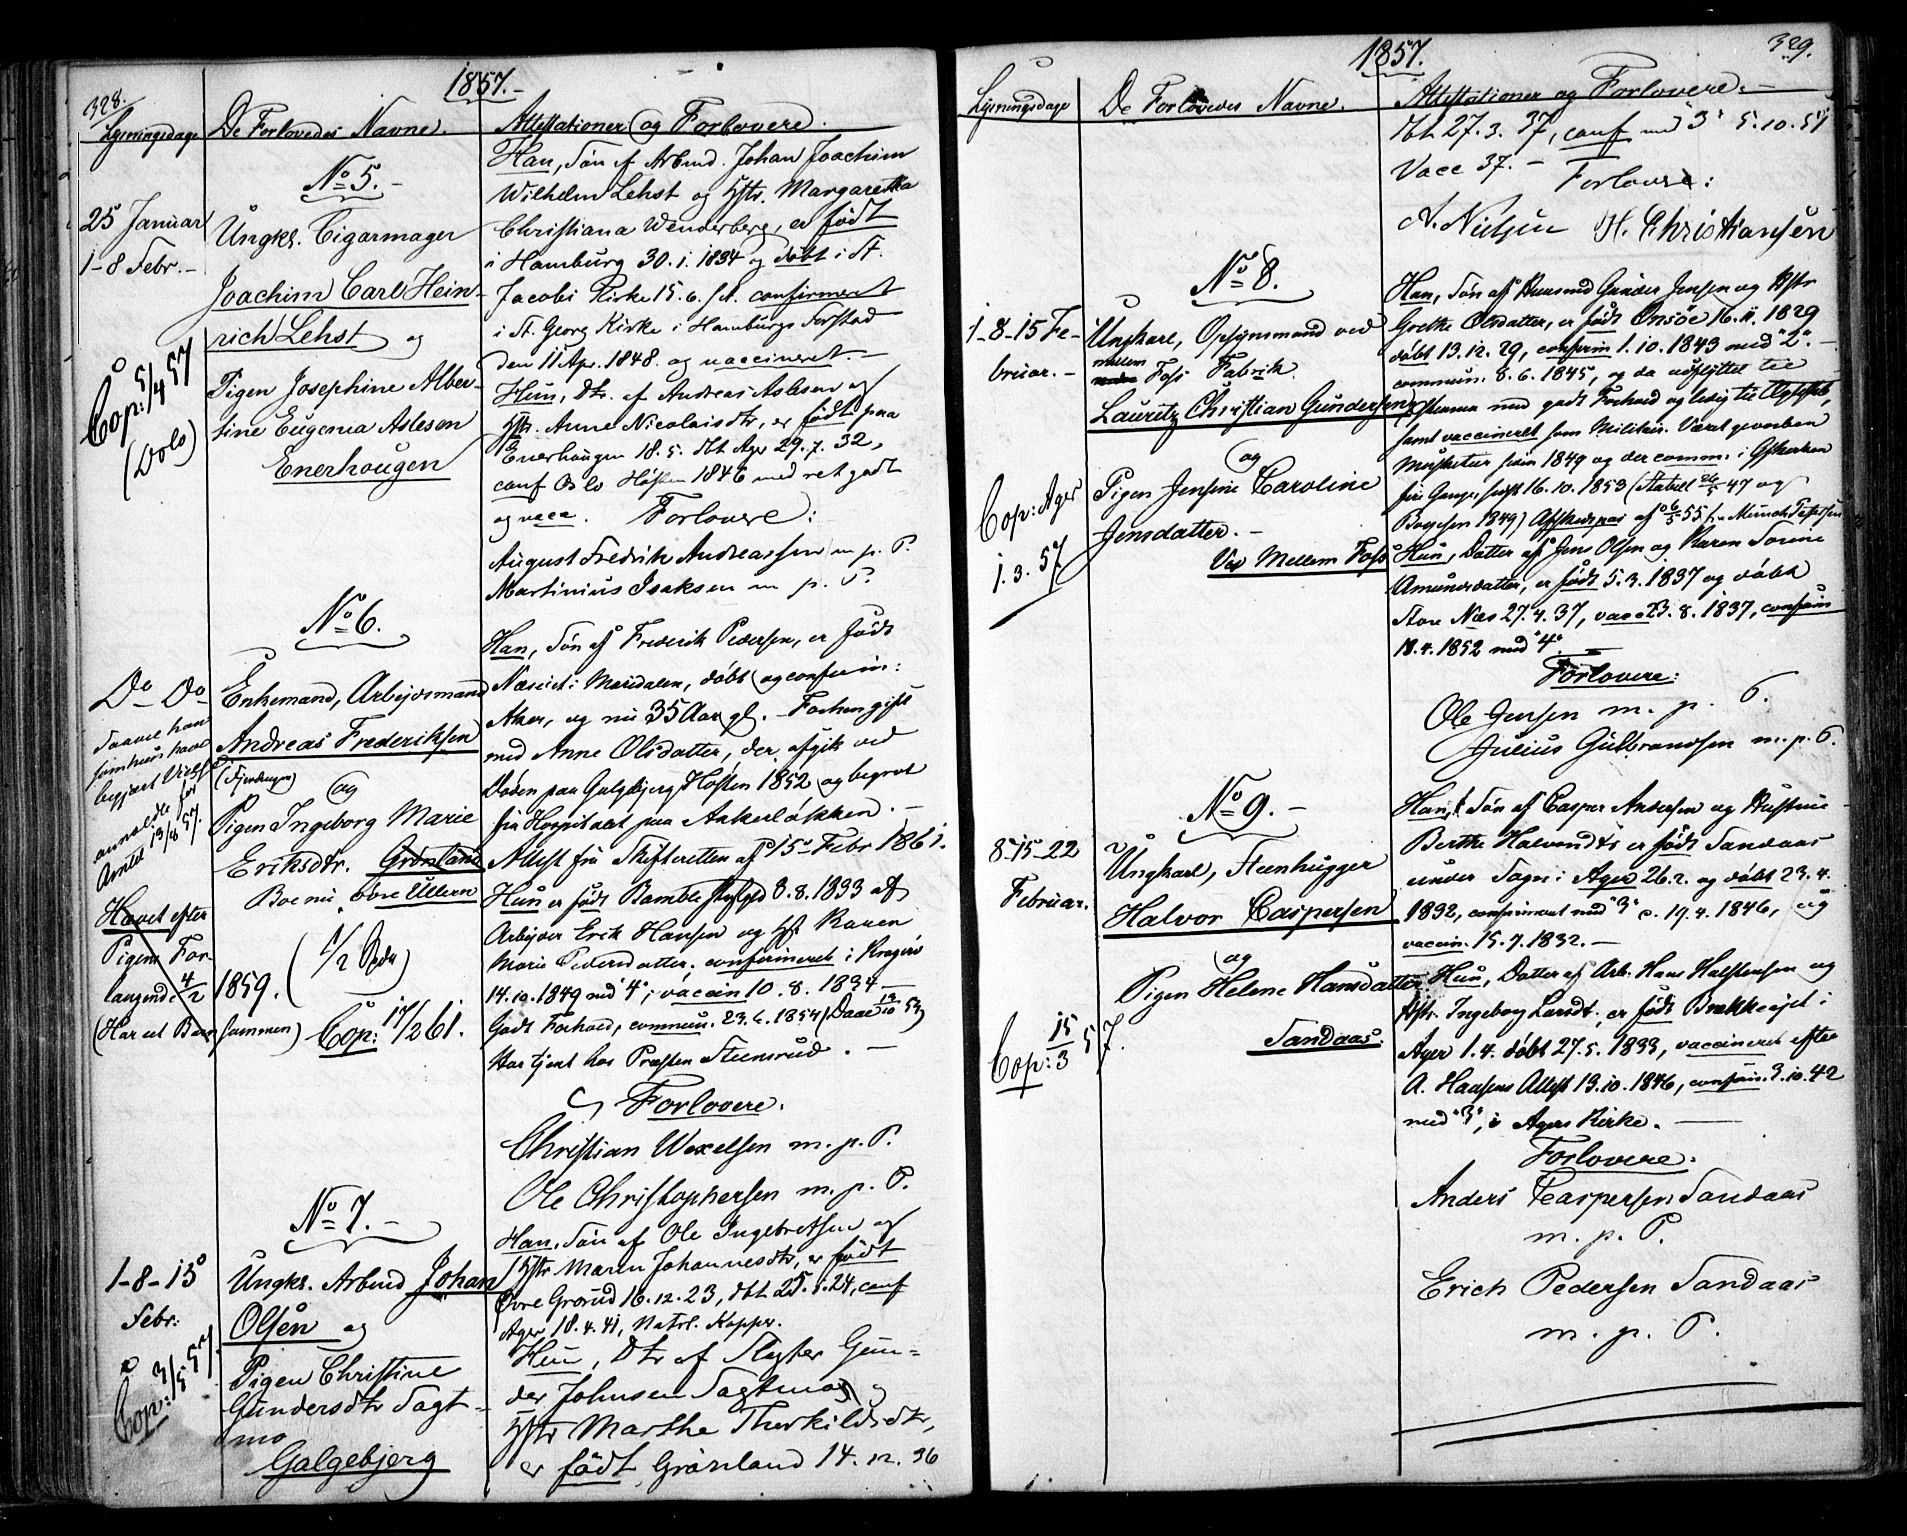 328.
1857.
Lysningsdage De Forlovedes Navne. Attestationer og Forlovere.
No 5.
25 Januar
1-8 Febr.
Cop: 5/4 57
(Dols)
Ungkr. Cigarmager
Joachim Carl Hein-
rich Lehst og
Pigen Josephine Alber-
tine Eugenia Aslesen
Enerhougen
Han, Søn af Arbmd. Johan Joachim
Wilhelm Lehst og Hstr. Margaretha
Christiana Wenderberg, er født
i Hamburg 30.1.1834 og døbt i St.
Jacobi Kirke 15.6. s.A. confirmeret
i St. Georg Kirke i Hamburgs Forstad
den 11 Apr. 1848. og vaccineret.
Hun, Dtr. af Andreas Aslesen og
Hstr. Anne Nicolaisdtr, er født paa
Enerhaugen 18.5. dbt Ager 29.7.32,
conf Oslo Høsten 1846 med ret godt
og vacc. Forlovere:
August Fredrik Andreassen m. p. P.
Martinius Isaksen m. p. P.
No 6.
Do Do
Samme han
somhus have
begjært Vielse
anmeldt for
13/8 57.
Havet efter
Pigens For-
langende 4/2 1859.
(Har et Barn sammen)
Enkemand, Arbejdsmand
Andreas Frederiksen
(Fjerdingen)
og
Pigen Ingeborg Marie
Eriksdtr. Grønland
Boe nu øvre Ullern
(1/2 Spdr)
Cop: 17/2 61.
Han, Søn af Frederik Pedersen, er født
Næset i Maridalen, døbt og confirm:
Aker, og nu 35 Aar gl. - Forhen gift
med Anne Olsdatter, der afgik ved
Døden paa Galgebjerg Høsten 1852 og begrot
fra Hospitalet paa Ankerløkken. -
Attest fra Skifteretten af 15 Febr 1861.
Hun er født Bamble 8.8.1833 af
Arbejder Erik Hansen og Hst Karen
Marie Pedersdatter, confirmeret i Kragerø
14.10.1849 med "4", vaccin 10.8.1834 -
Godt Forhold, commun. 23.6.1854 (Daae 19/10 53)
Har tjent hos Præsten Steensrud. -
Forlovere.
Christian Wexelsen m. p. P.
Ole Christophersen m. p. P.
No 7. -
1-8-15
Febr:
Cop: 3/5 57
Ungkr. Arbmd Johan
Olsen og
Pigen Christine
Gundersdtr Sagt-
mo
Galgebjerg
Han, Søn af Ole Ingebretsen og
Hstr Maren Johannesdtr, er født
Øvre Grorud 16.12.23, dbt 25.1.24, conf
Ager 18.4.41, Natrl. Kopper.
Hun, Dtr af Slagter Gun-
der Johnsen Sagtmo og
Hstr Marthe Therkildsdtr,
er født Grønland 14.12.36
329.
1857.
Lysningsdage De Forlovedes Navne. Attestationer og Forlovere. -
dbt 27.3.37, conf med "3" 5.10.51
Vacc 37. - Forlovere:
N. Nielsen H. Christiansen
No 8.
1-8-15 Fe-
bruar. -
Cop: Ager
1.3.57
Ungkarl, Opsynsmand ved
mellem Foss Fabrik
Lauritz Christian Gundersen
og
Pigen Jensine Caroline
Jensdatter. -
Ved Mellem Foss
Han, Søn af Huusmd Gunder Jensen og Hstr
Grethe Olsdatter, er født Onsøe 16.11.1829
døbt 13.12.29, confirm 1.10.1843 med "2". -
commun. 8.6.1845, og da udflyttet
med godt Forhold og ledig til Ægteskab,
samt vaccineret som Militair. Været gevorben
Musketer siden 1849 og der comm: i Gskirken
16.10.1853 (Stabell 26/5 47 og
Boyesen 1849) Afskedspas af 6/5 55 fra Munch Petersen
Hun, Datter af Jens Olsen og Karen Sorine
Amundsdatter, er født 5.3.1837 og døbt
Store Næs 27.4.37, vacc 23.8.1837, confirm
18.4.1852 med "4".
Forlovere:
Ole Jensen m. p. P.
Julius Gulbrandsen m. p. P.
No 9. -
8-15-22
Februar.
Cop: 15/3 57.
Ungkarl, Steenhugger
Halvor Caspersen
og
Pigen Helene Hansdatter
Sandaas.
Han, Søn af Casper Andersen og Hustrue
Berthe Halvorsdtr er født Sandaas
under Sogn i Ager 26.2. og døbt 23.4.
1832, confirmeret med "3" c. 19.4.1846, og
vaccin. 15.7.1832. -
Hun, Datter af Arb. Hans Halstensen og
Hstr. Ingeborg Larsdt., er født Brekkeejet i
Ager 1.4. døbt 27.5.1833, vaccineret efter
A. Hansens Attest 13.10.1846, confirm. 3.10.42
med "3", i Agers Kirke. -
Forlovere:
Anders Caspersen Sandaas
m. p. P.
Erich Pedersen Sandaas
m. p. P.